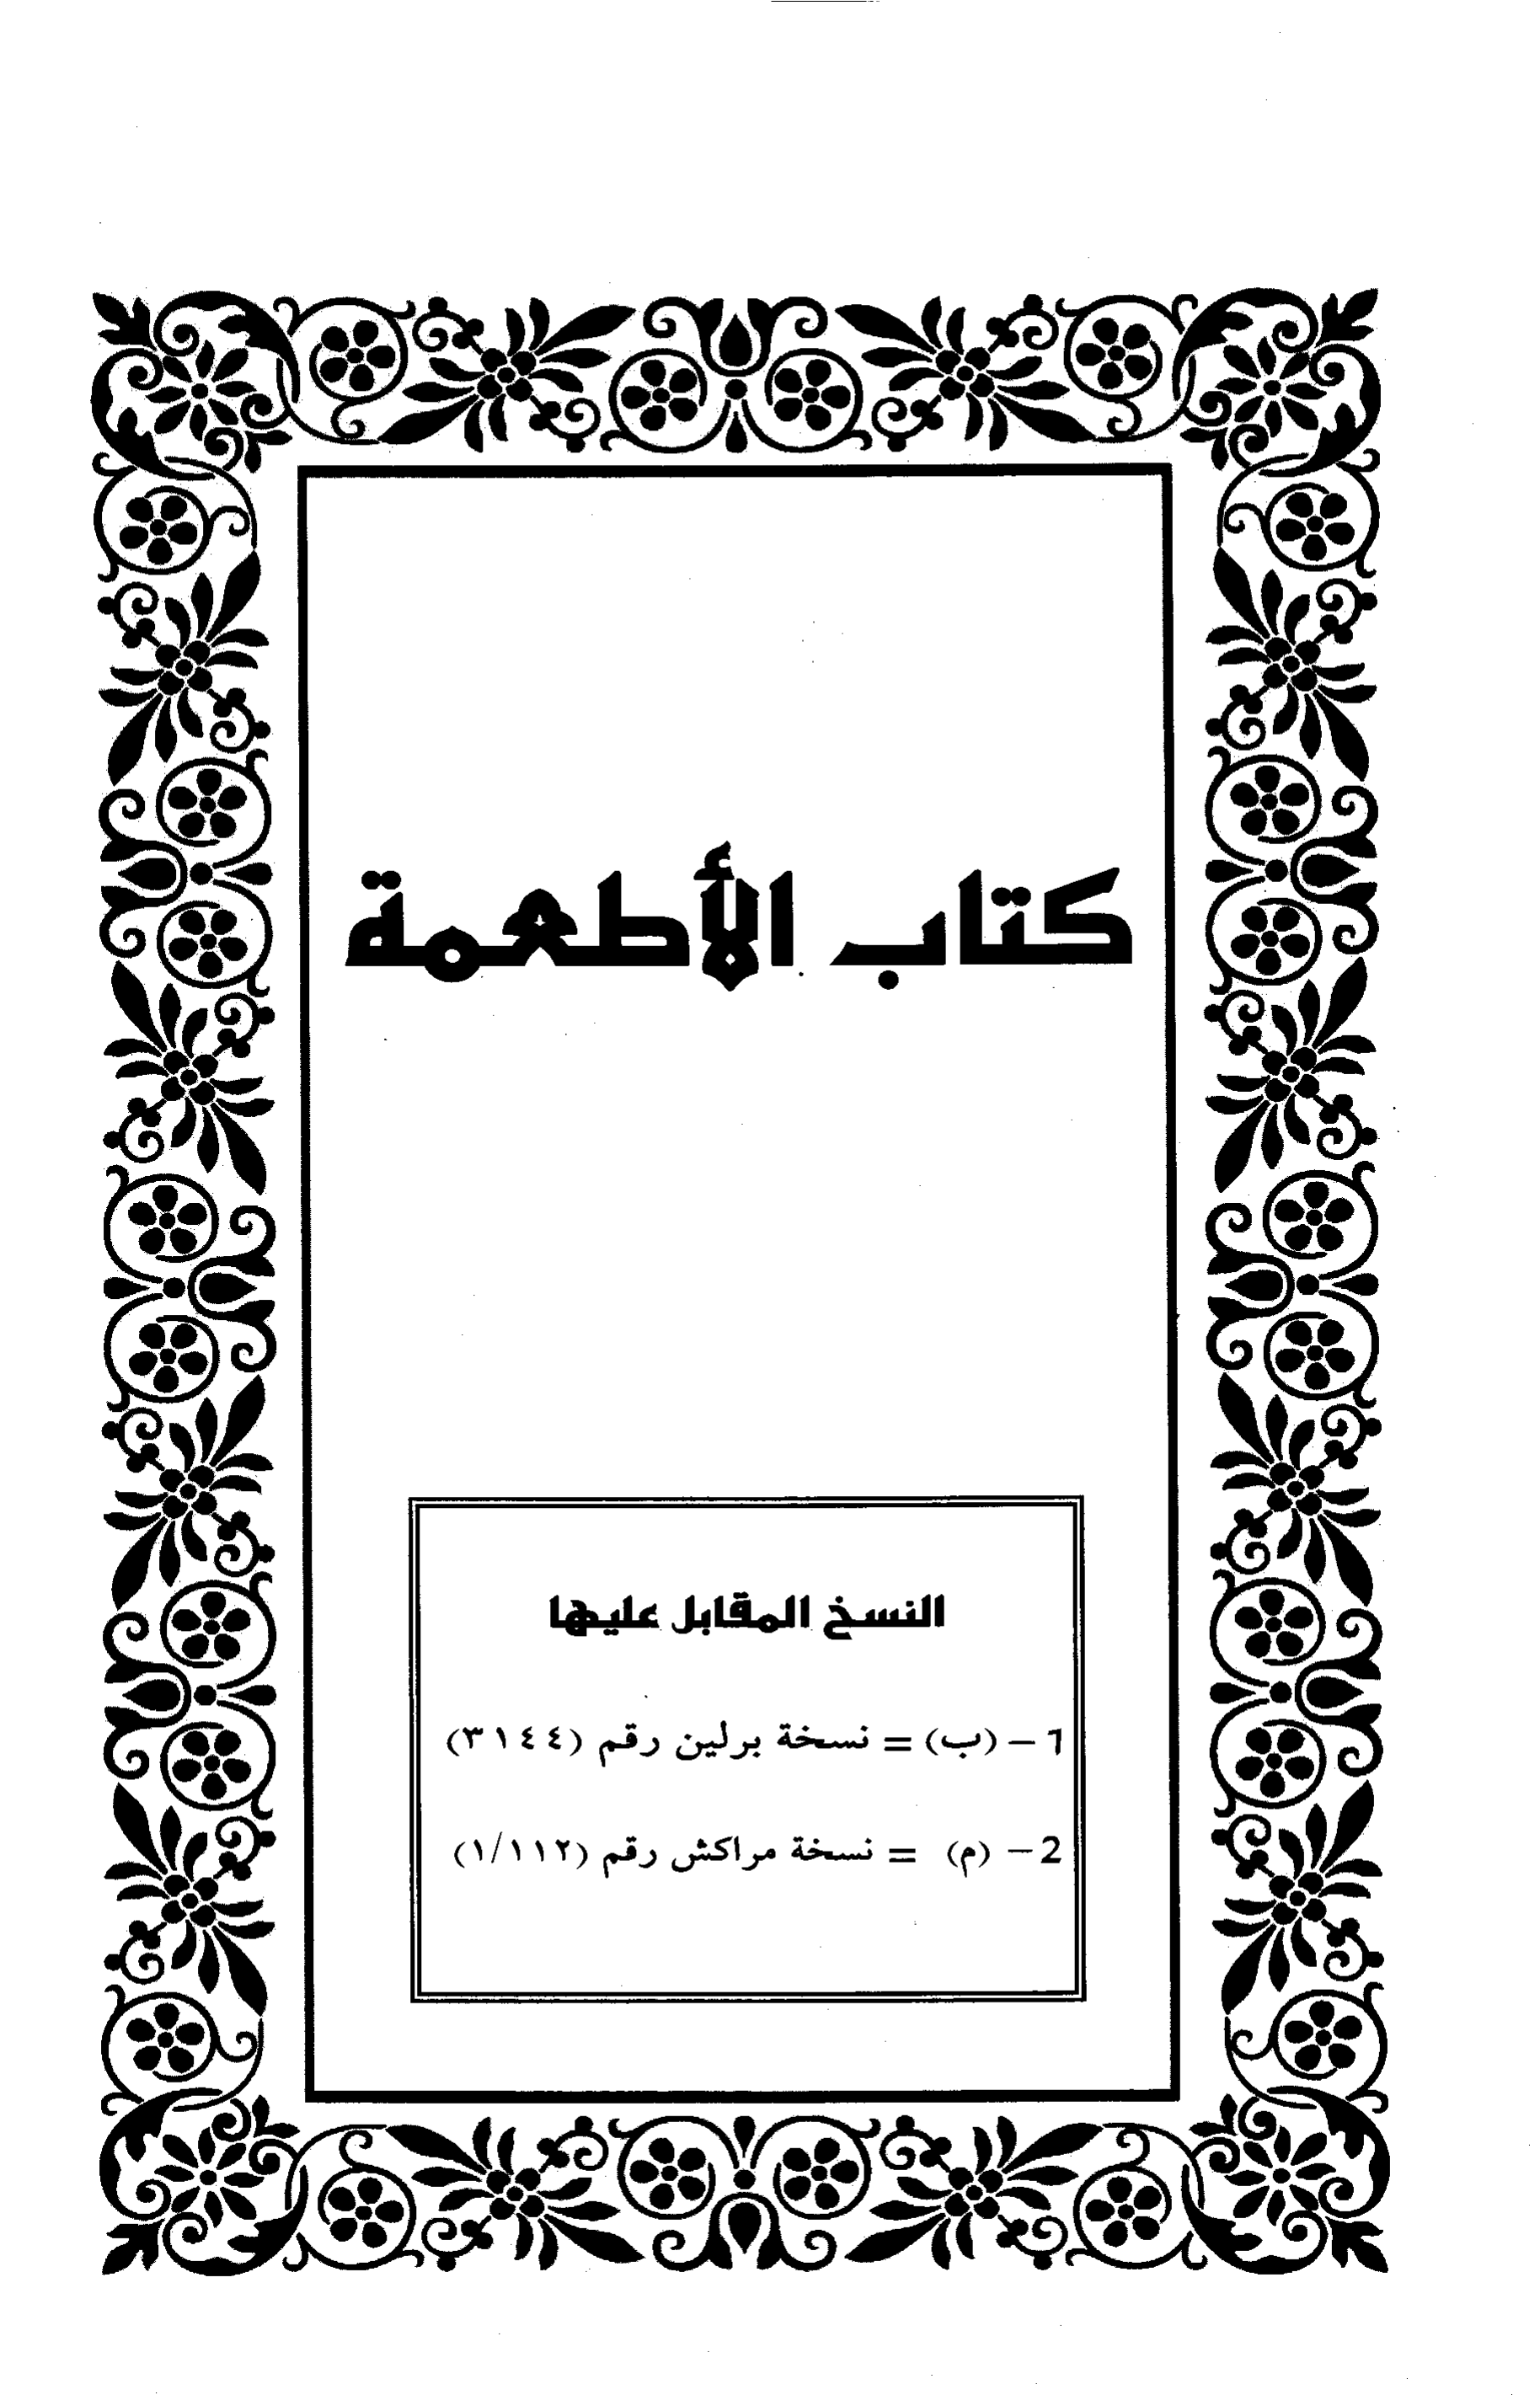 كتاب الأطعمة
النسخ المقابل عليها
1 - (ب) = نسخة برلين رقم (٣١٤٤)
2 - (م) = نسخة مراكش رقم (١/١١٢)